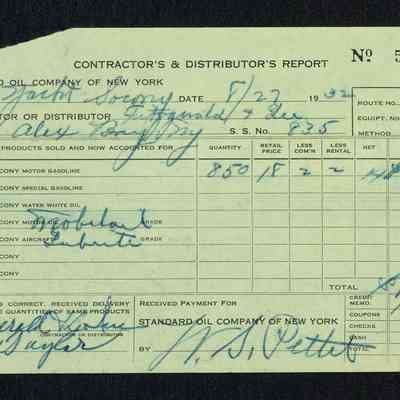 CONTRACTOR'S & DISTRIBUTOR'S REPORT Nº 5
RD OIL COMPANY OF NEW YORK
Yacht Socony DATE 8/27 1932 ROUTE NO.
TOR OR DISTRIBUTOR Fitzgerald & Lee EQUIPT. N
Alex Bay NY S. S. No. 835 METHOD
PRODUCTS SOLD AND NOW ACCOUNTED FOR QUANTITY RETAIL PRICE LESS COM'N LESS RENTAL NET
CONY MOTOR GASOLINE 850 18 2 2
CONY SPECIAL GASOLINE
CONY WATER WHITE OIL
CONY MOTOR OIL Mobiloil GRADE
CONY AIRCRAFT GRADE
CONY
CONY
TOTAL
IS CORRECT. RECEIVED DELIVERY
E QUANTITIES OF SAME PRODUCTS
RECEIVED PAYMENT FOR
STANDARD OIL COMPANY OF NEW YORK
CREDIT MEMO.
COUPONS
CHECKS
CASH
TOTAL
CONTRACTOR OR DISTRIBUTOR
Taylor
BY W. S. Pettet